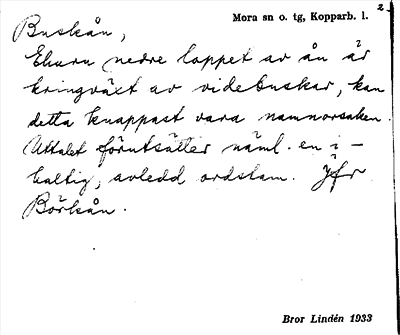 2
Mora sn o. tg, Kopparb. l.
Buskån,
Ehuru nedre loppet av ån är
kringväxt av videbuskar, kan
detta knappast vara namnorsaken.
Uttalet förutsätter näml. en i-
haltig, avledd ordstam. Jfr
Börkån.
Bror Lindén 1933